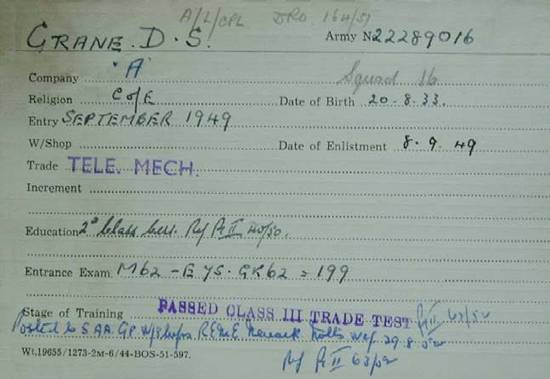 A/L/CPL DRO 164/51
CRANE. D. S. Army No 22289016
Company "A" Squad 16
Religion C of E Date of Birth 20.8.33.
Entry SEPTEMBER 1949
W/Shop Date of Enlistment 8.9.49
Trade TELE. MECH.
Increment
Education 2d Class Cert. Ref Pt II 40/50.
Entrance Exam. M62 - E 75. GK62 = 199
Stage of Training PASSED CLASS III TRADE TEST Pt II 63/52
Posted to 5 AA GP W/Shops REME Newark Notts wef 29.8.52
Wt.19655/1273-2M-6/44-BOS-51-597. Ref Pt II 63/52